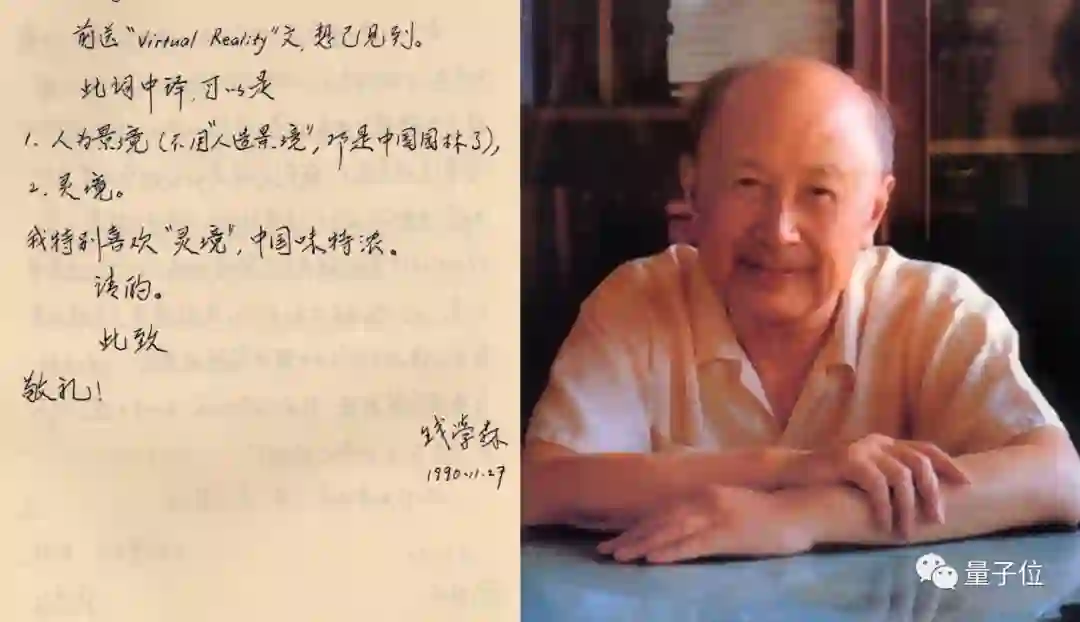 前送“Virtual Reality”文，想已见到。
此词中译，可以是
1. 人为景境（不用“人造景境”，那是中国园林了），
2. 灵境。
我特别喜欢“灵境”，中国味特浓。
请酌。
此致
敬礼！
钱学森
1990.11.27
量子位